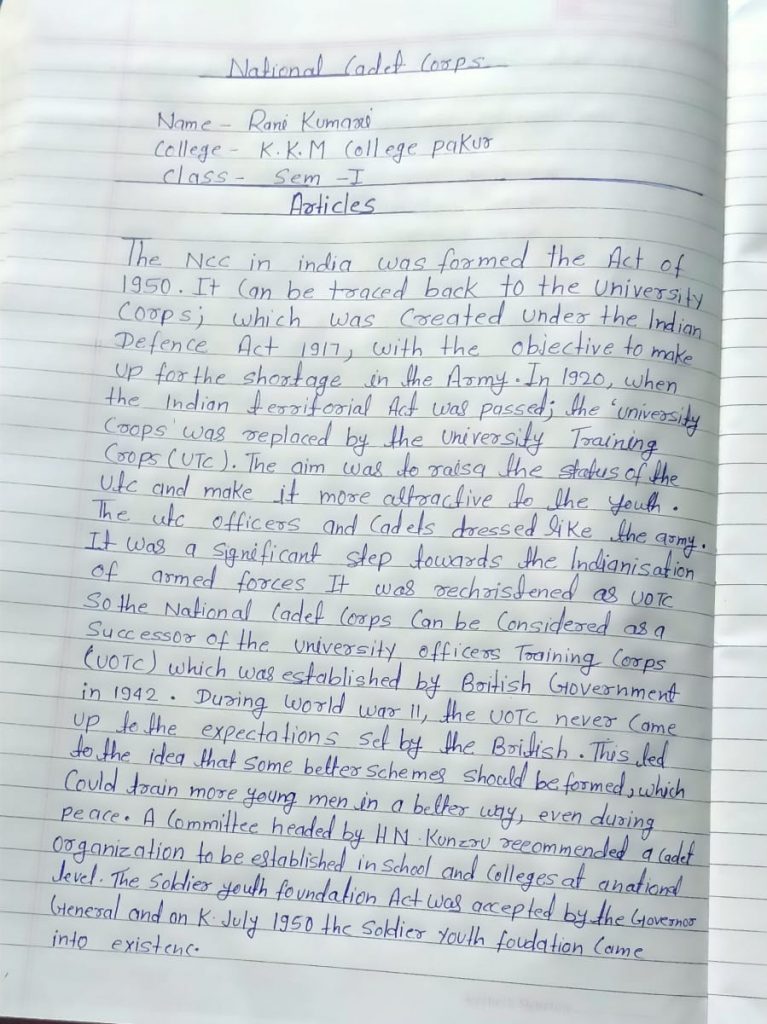 National Cadet Corps
Name - Rani Kumari
College - K.K.M College pakur
Class - Sem -I
Articles
The Ncc in india was formed the Act of
1950. It Can be traced back to the University
Corps; which was Created under the Indian
Defence Act 1917, with the objective to make
up for the shortage in the Army. In 1920, when
the Indian territorial Act was passed; the 'university
Corps' was replaced by the University Training
Corps (UTC). The aim was to raisa the status of the
Utc and make it more attractive to the youth.
The utc officers and Cadets dressed like the army.
It was a Significant step towards the Indianisation
of armed forces It was rechristened as UOTC
So the National Cadet Corps Can be Considered as a
Successor of the University officers Training Corps
(UOTC) which was established by British Government
in 1942. During World war 11, the UOTC never Came
up to the expectations set by the British. This led
to the idea that some better schemes should be formed, which
Could train more young men in a better way, even during
peace. A Committee headed by H.N. Kunzru reecommended a Cadet
organization to be established in School and Colleges at a national
level. The Soldier youth foundation Act was accepted by the Governor
General and on K. July 1950 the Soldier Youth foudation Came
into existenc.